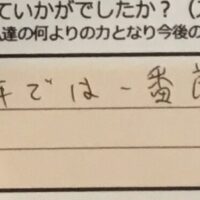 ていかがでしたか?
達の何よりの力となり今後の
では一番